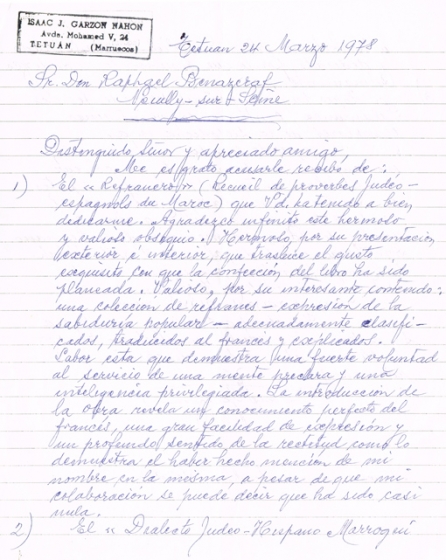 ISAAC J. GARZON NAHON
Avda. Mohamed V, 24
TETUÁN (Marruecos)
Tetuan 24 Marzo 1978
Sr. Don Raphael Benazeraf
Neuilly-sur-Seine
Distinguido Señor y apreciado amigo,
Me es grato acusarle recibo de:
1) El "Refranero" (Recueil de proverbes Judéo-
espagnols du Maroc) que Vd. ha tenido a bien
dedicarme. Agradezco infinito este hermoso
y valioso obsequio. Hermoso, por su presentación
exterior e interior, que trasluce el gusto
exquisito con que la confección del libro ha sido
planeada. Valioso, por su interesante contenido:
una colección de refranes - expresión de la
sabiduría popular - adecuadamente clasifi-
cados, traducidos al francés y explicados.
Labor esta que demuestra una fuerte voluntad
al servicio de una mente preclara y una
inteligencia privilegiada. La introducción de
la obra revela un conocimiento perfecto del
francés, una gran facilidad de expresión y
un profundo sentido de la rectitud como lo
demuestra el haber hecho mención de mi
nombre en la misma, a pesar de que mi
colaboración se puede decir que ha sido casi
nula.
2) El "Dialecto Judeo-Hispano Marroquí